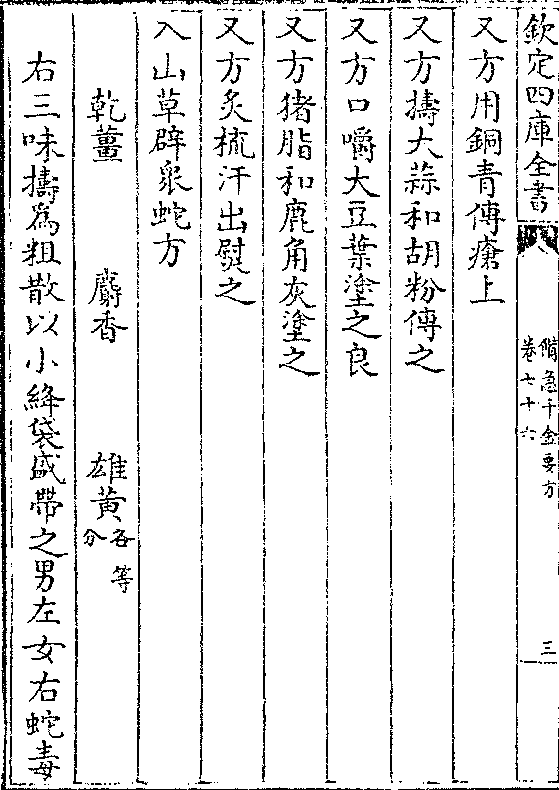 欽定四庫全書
備急千金要方
卷七十六
三
又方用銅青傅瘡上
又方擣大蒜和胡粉傅之
又方口嚼大豆葉塗之良
又方猪脂和鹿角灰塗之
又方炙梳汗出熨之
入山草辟眾蛇方
乾薑 麝香 雄黃各等分
右三味擣為粗散以小絳袋盛帶之男左女右蛇毒